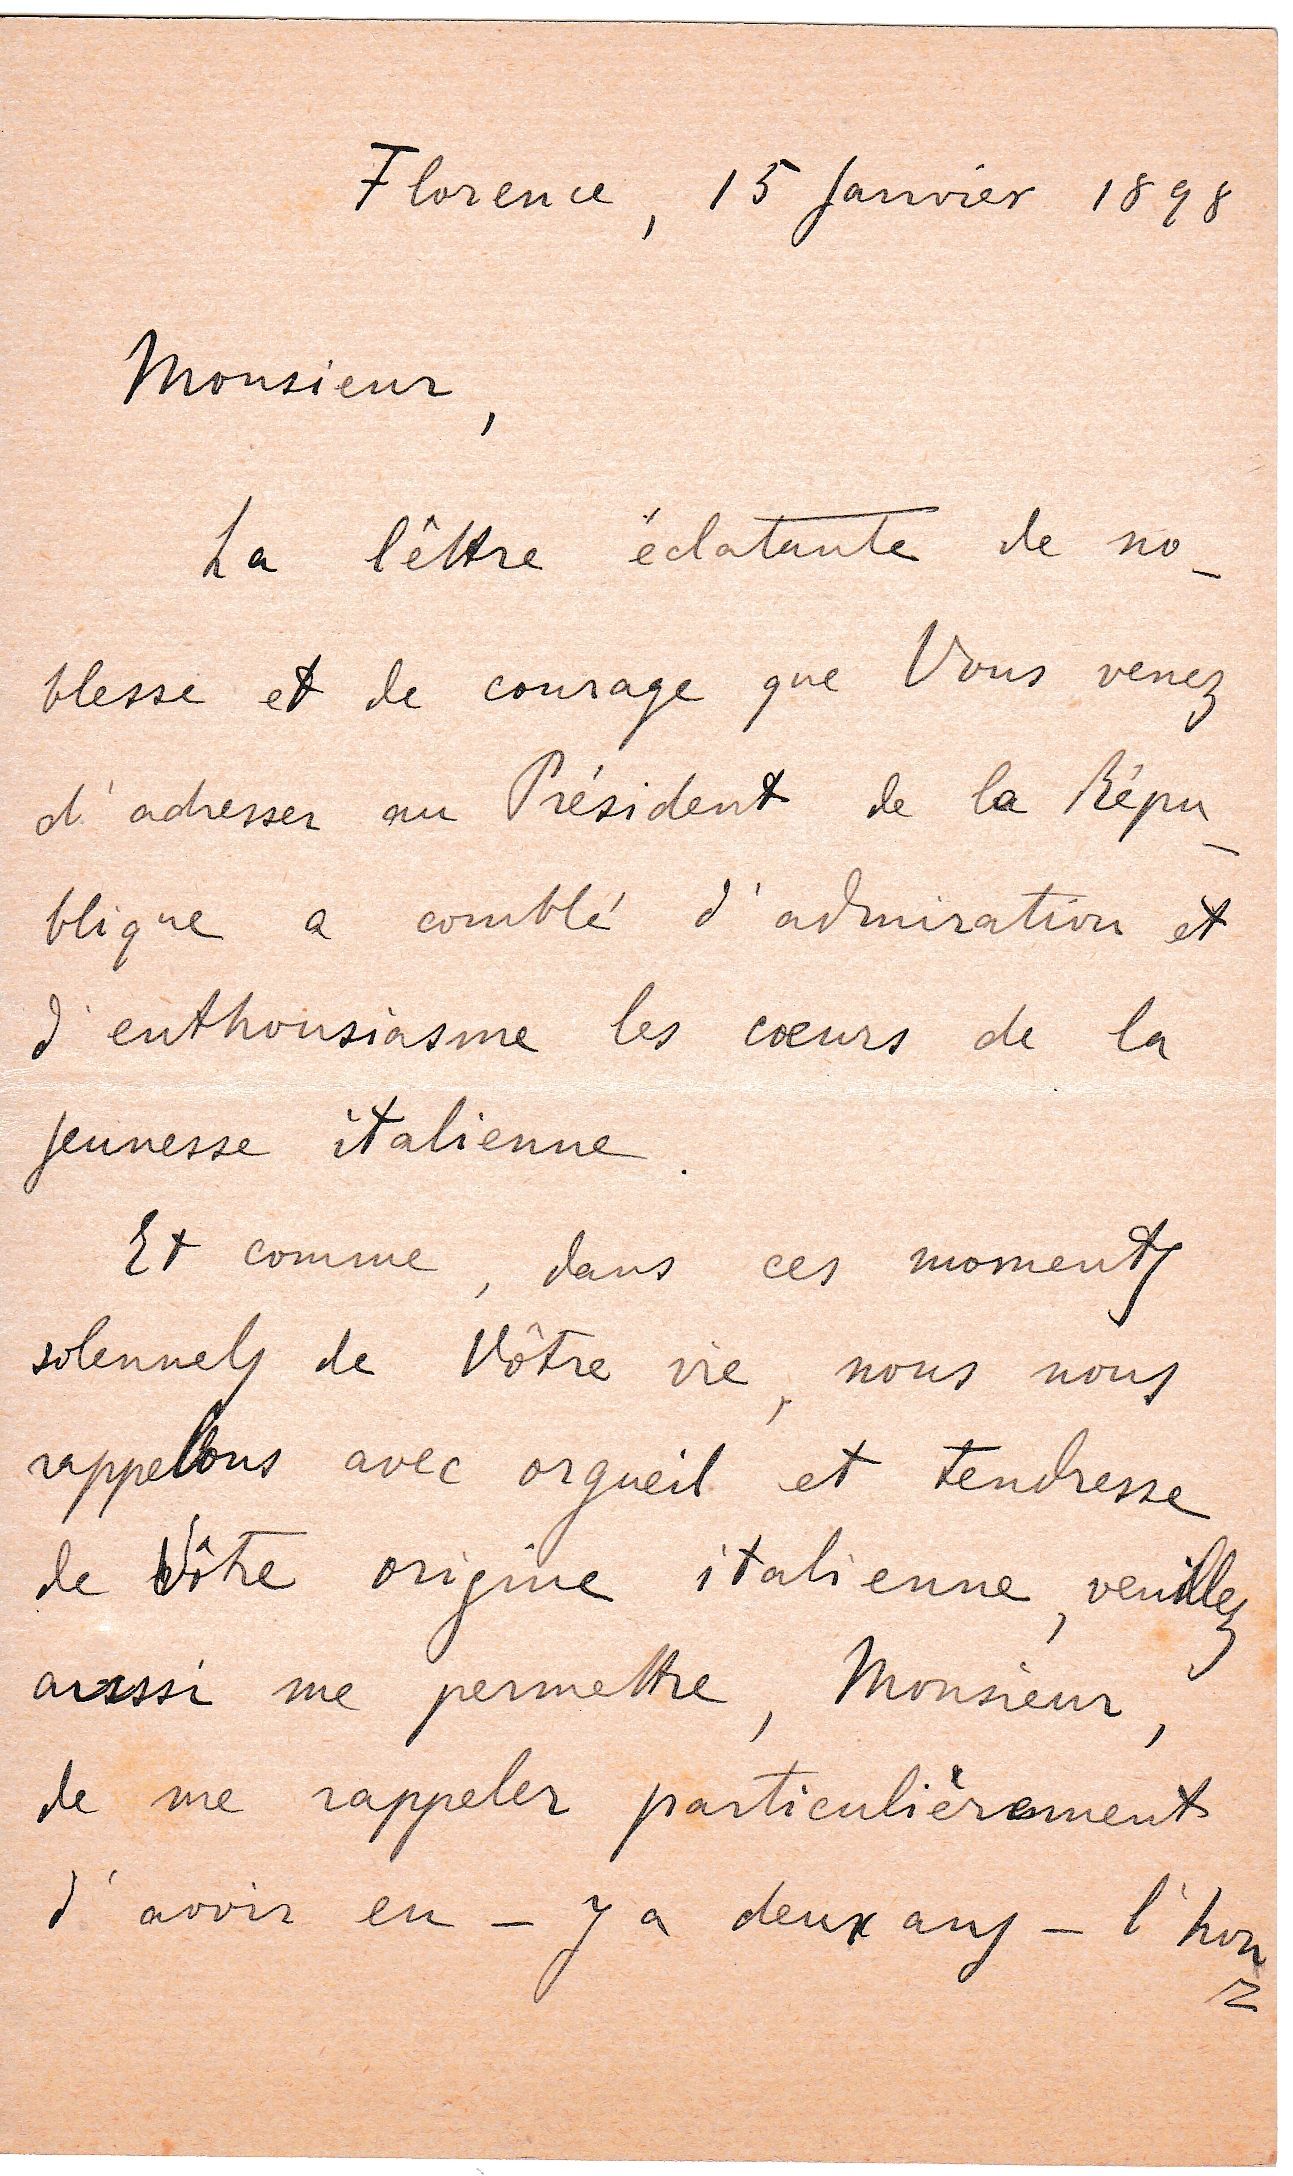 Florence, 15 Janvier 1898
Monsieur,
La lêttre éclatante de no-
blesse et de courage que Vous venez
d'adresser au Président de la Répu-
blique a comblé d'admiration et
d'enthousiasme les cœurs de la
jeunesse italienne.
Et comme, dans ces moments
solennels de Vôtre vie, nous nous
rappelons avec orgueil et tendresse
de Vôtre origine italienne, veuillez
aussi me permettre, Monsieur,
de me rappeler particulièrement
d'avoir eu - y a deux ans - l'hon